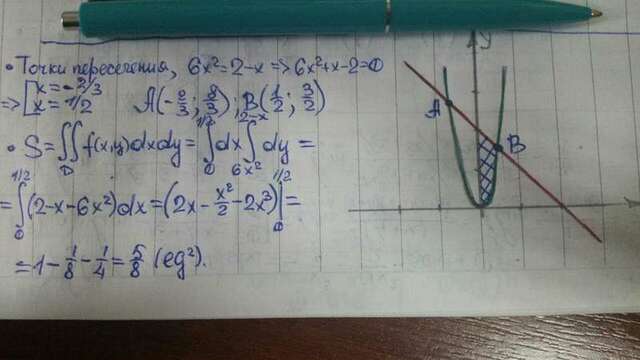 • Точки пересечения, 6x²=2-x => 6x²+x-2=0
=> [x=-2/3 x=1/2 A(-2/3; 8/3), B(1/2; 3/2)
• S=∬_D f(x,y)dxdy=∫_0^{1/2}dx∫_{6x²}^{2-x}dy=
=∫_0^{1/2}(2-x-6x²)dx=(2x-x²/2-2x³)|_0^{1/2}=
=1-1/8-1/4=5/8 (ед²).
y
A
B